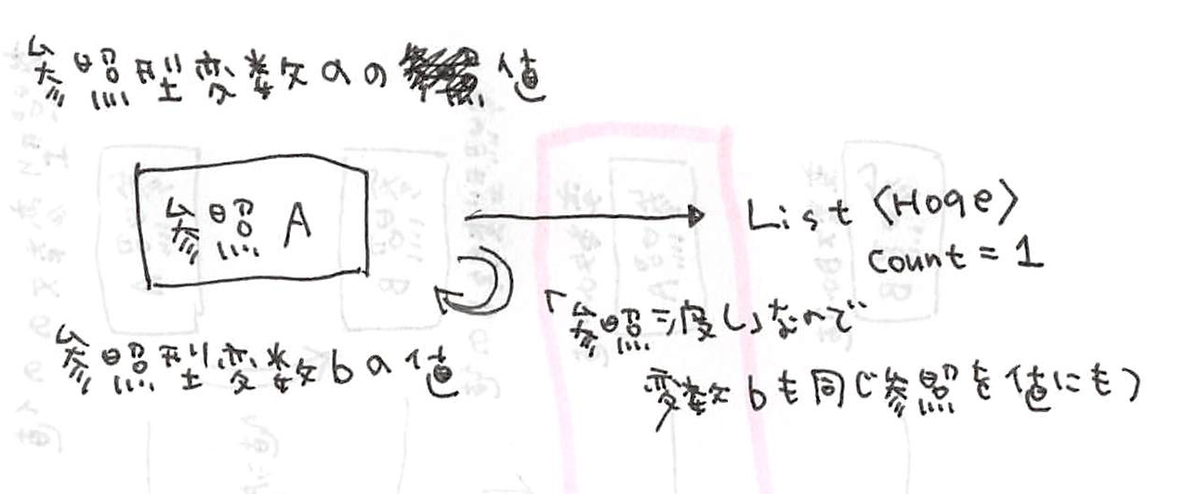 参照型変数aの値
参照 A
List〈Hoge〉
count = 1
「参照渡し」なので
参照型変数bの値
変数bも同じ参照を値にもつ